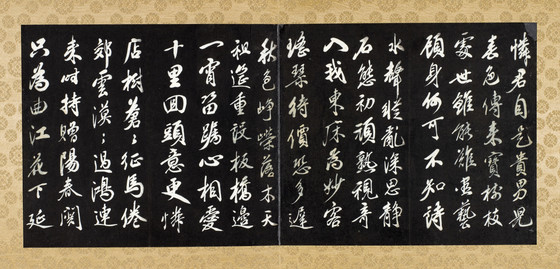 憐君自是貴男兒
春色傳來寶樹枝
處世雖能離藝
顧身何可不知詩
水聲縱亂深思靜
石態初頑熟視奇
入我東床為妙客
瑤琴待價恐多遲
秋色崢嶸落木天
祖筵重設板橋邊
一宵躅心相愛
十里回頭意更憐
店樹蒼〻征馬倦
郊雲漠〻過鴻連
來時持贈陽春闋
只為曲江花下延